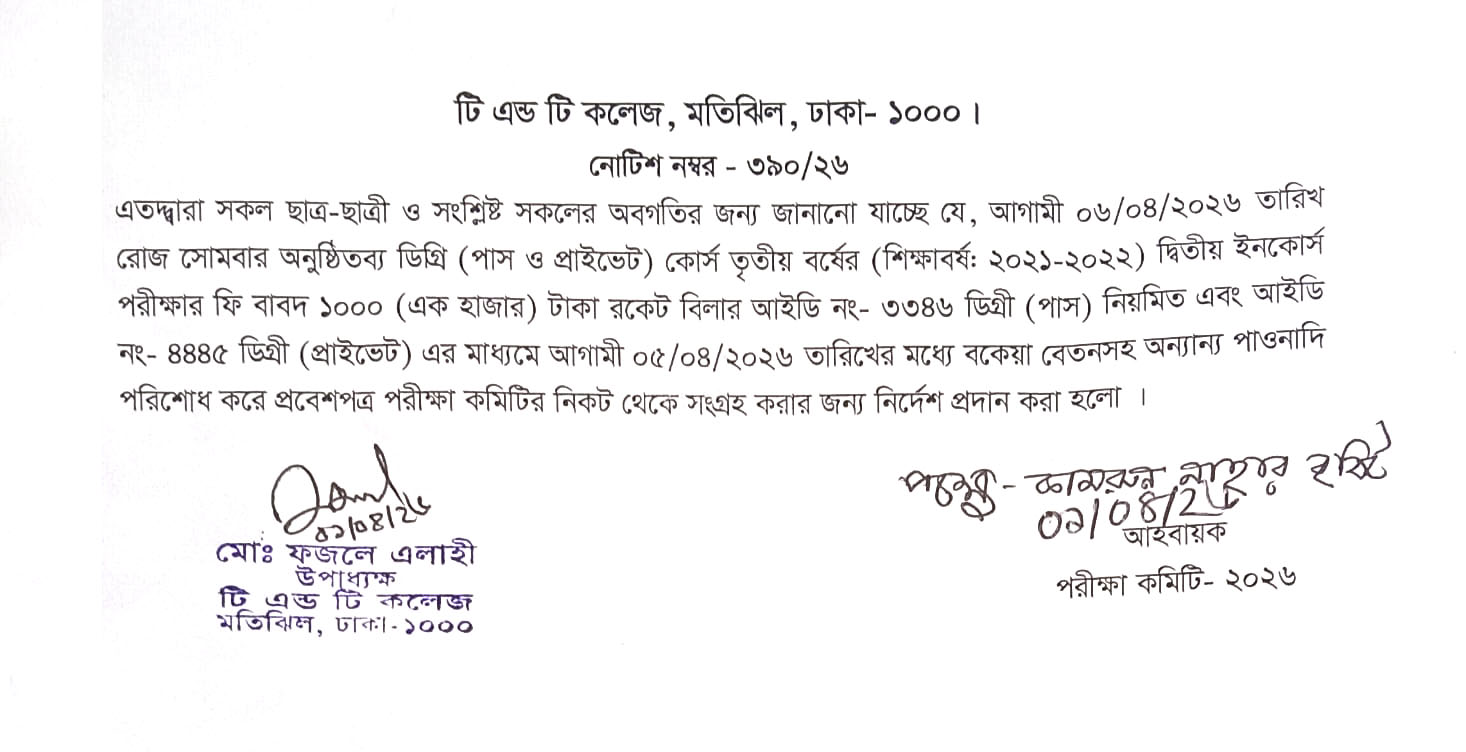 টি এন্ড টি কলেজ, মতিঝিল, ঢাকা- ১০০০ ।
নোটিশ নম্বর - ৩৯০/২৬
এতদ্দ্বারা সকল ছাত্র-ছাত্রী ও সংশ্লিষ্ট সকলের অবগতির জন্য জানানো যাচ্ছে যে, আগামী ০৬/০৪/২০২৬ তারিখ
রোজ সোমবার অনুষ্ঠিতব্য ডিগ্রি (পাস ও প্রাইভেট) কোর্স তৃতীয় বর্ষের (শিক্ষাবর্ষঃ ২০২১-২০২২) দ্বিতীয় ইনকোর্স
পরীক্ষার ফি বাবদ ১০০০ (এক হাজার) টাকা রকেট বিলার আইডি নং- ৩৩৪৬ ডিগ্রী (পাস) নিয়মিত এবং আইডি
নং- ৪৪৪৫ ডিগ্রী (প্রাইভেট) এর মাধ্যমে আগামী ০৫/০৪/২০২৬ তারিখের মধ্যে বকেয়া বেতনসহ অন্যান্য পাওনাদি
পরিশোধ করে প্রবেশপত্র পরীক্ষা কমিটির নিকট থেকে সংগ্রহ করার জন্য নির্দেশ প্রদান করা হলো ।
০২/০৪/২৬
মোঃ ফজলে এলাহী
উপাধ্যক্ষ
টি এন্ড টি কলেজ
মতিঝিল, ঢাকা-১০০০
কামরুন নাহার বৃষ্টি
০২/০৪/২৬
আহবায়ক
পরীক্ষা কমিটি- ২০২৬